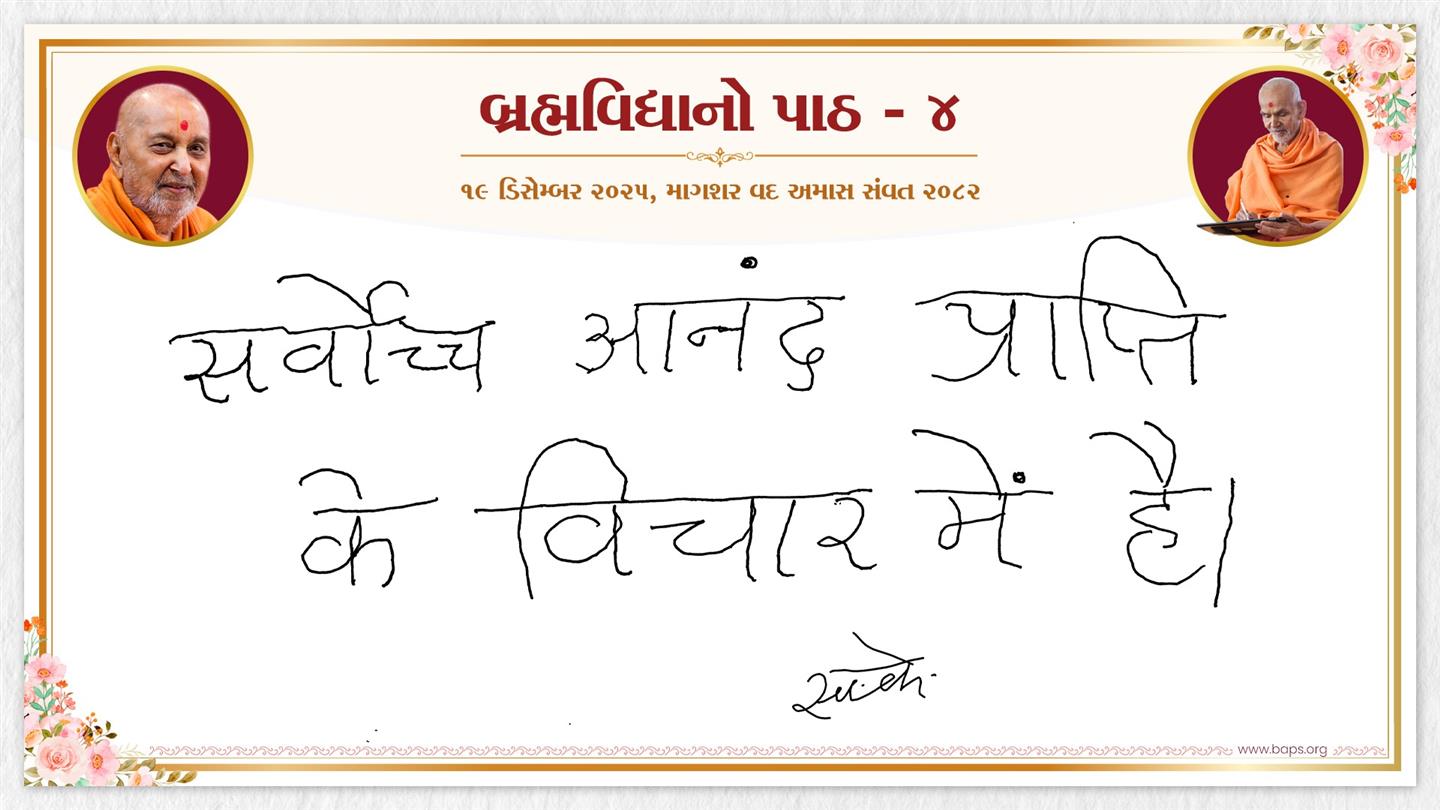 બ્રહ્મવિદ્યાનો પાઠ - ૪
૧૯ ડિસેમ્બર ૨૦૨૫, માગશર વદ અમાસ સંવત ૨૦૮૨
सर्वोच्च आनंद प्राप्ति
के विचार में है।
www.baps.org